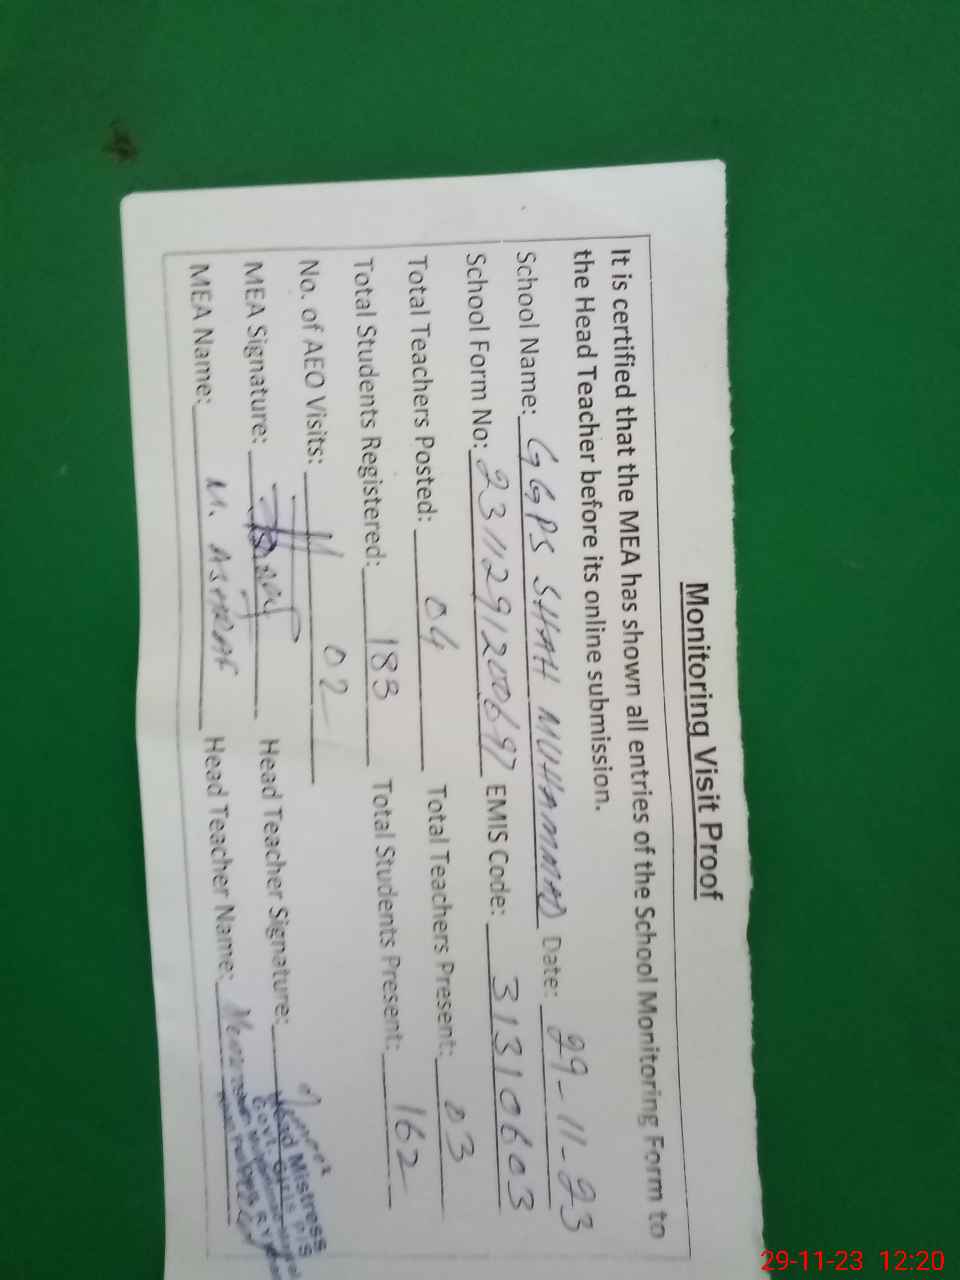 Monitoring Visit Proof
It is certified that the MEA has shown all entries of the School Monitoring Form to
the Head Teacher before its online submission.
School Name: GGPS SHAH MUHAMMAD Date: 29-11-23
School Form No: 2311291200697 EMIS Code: 31310603
Total Teachers Posted: 04 Total Teachers Present: 03
Total Students Registered: 183 Total Students Present: 162
No. of AEO Visits: 02
MEA Signature: Head Teacher Signature:
Head Mistress
Govt. Girls P/S
MEA Name: M. ASHRAF Head Teacher Name:
29-11-23 12:20